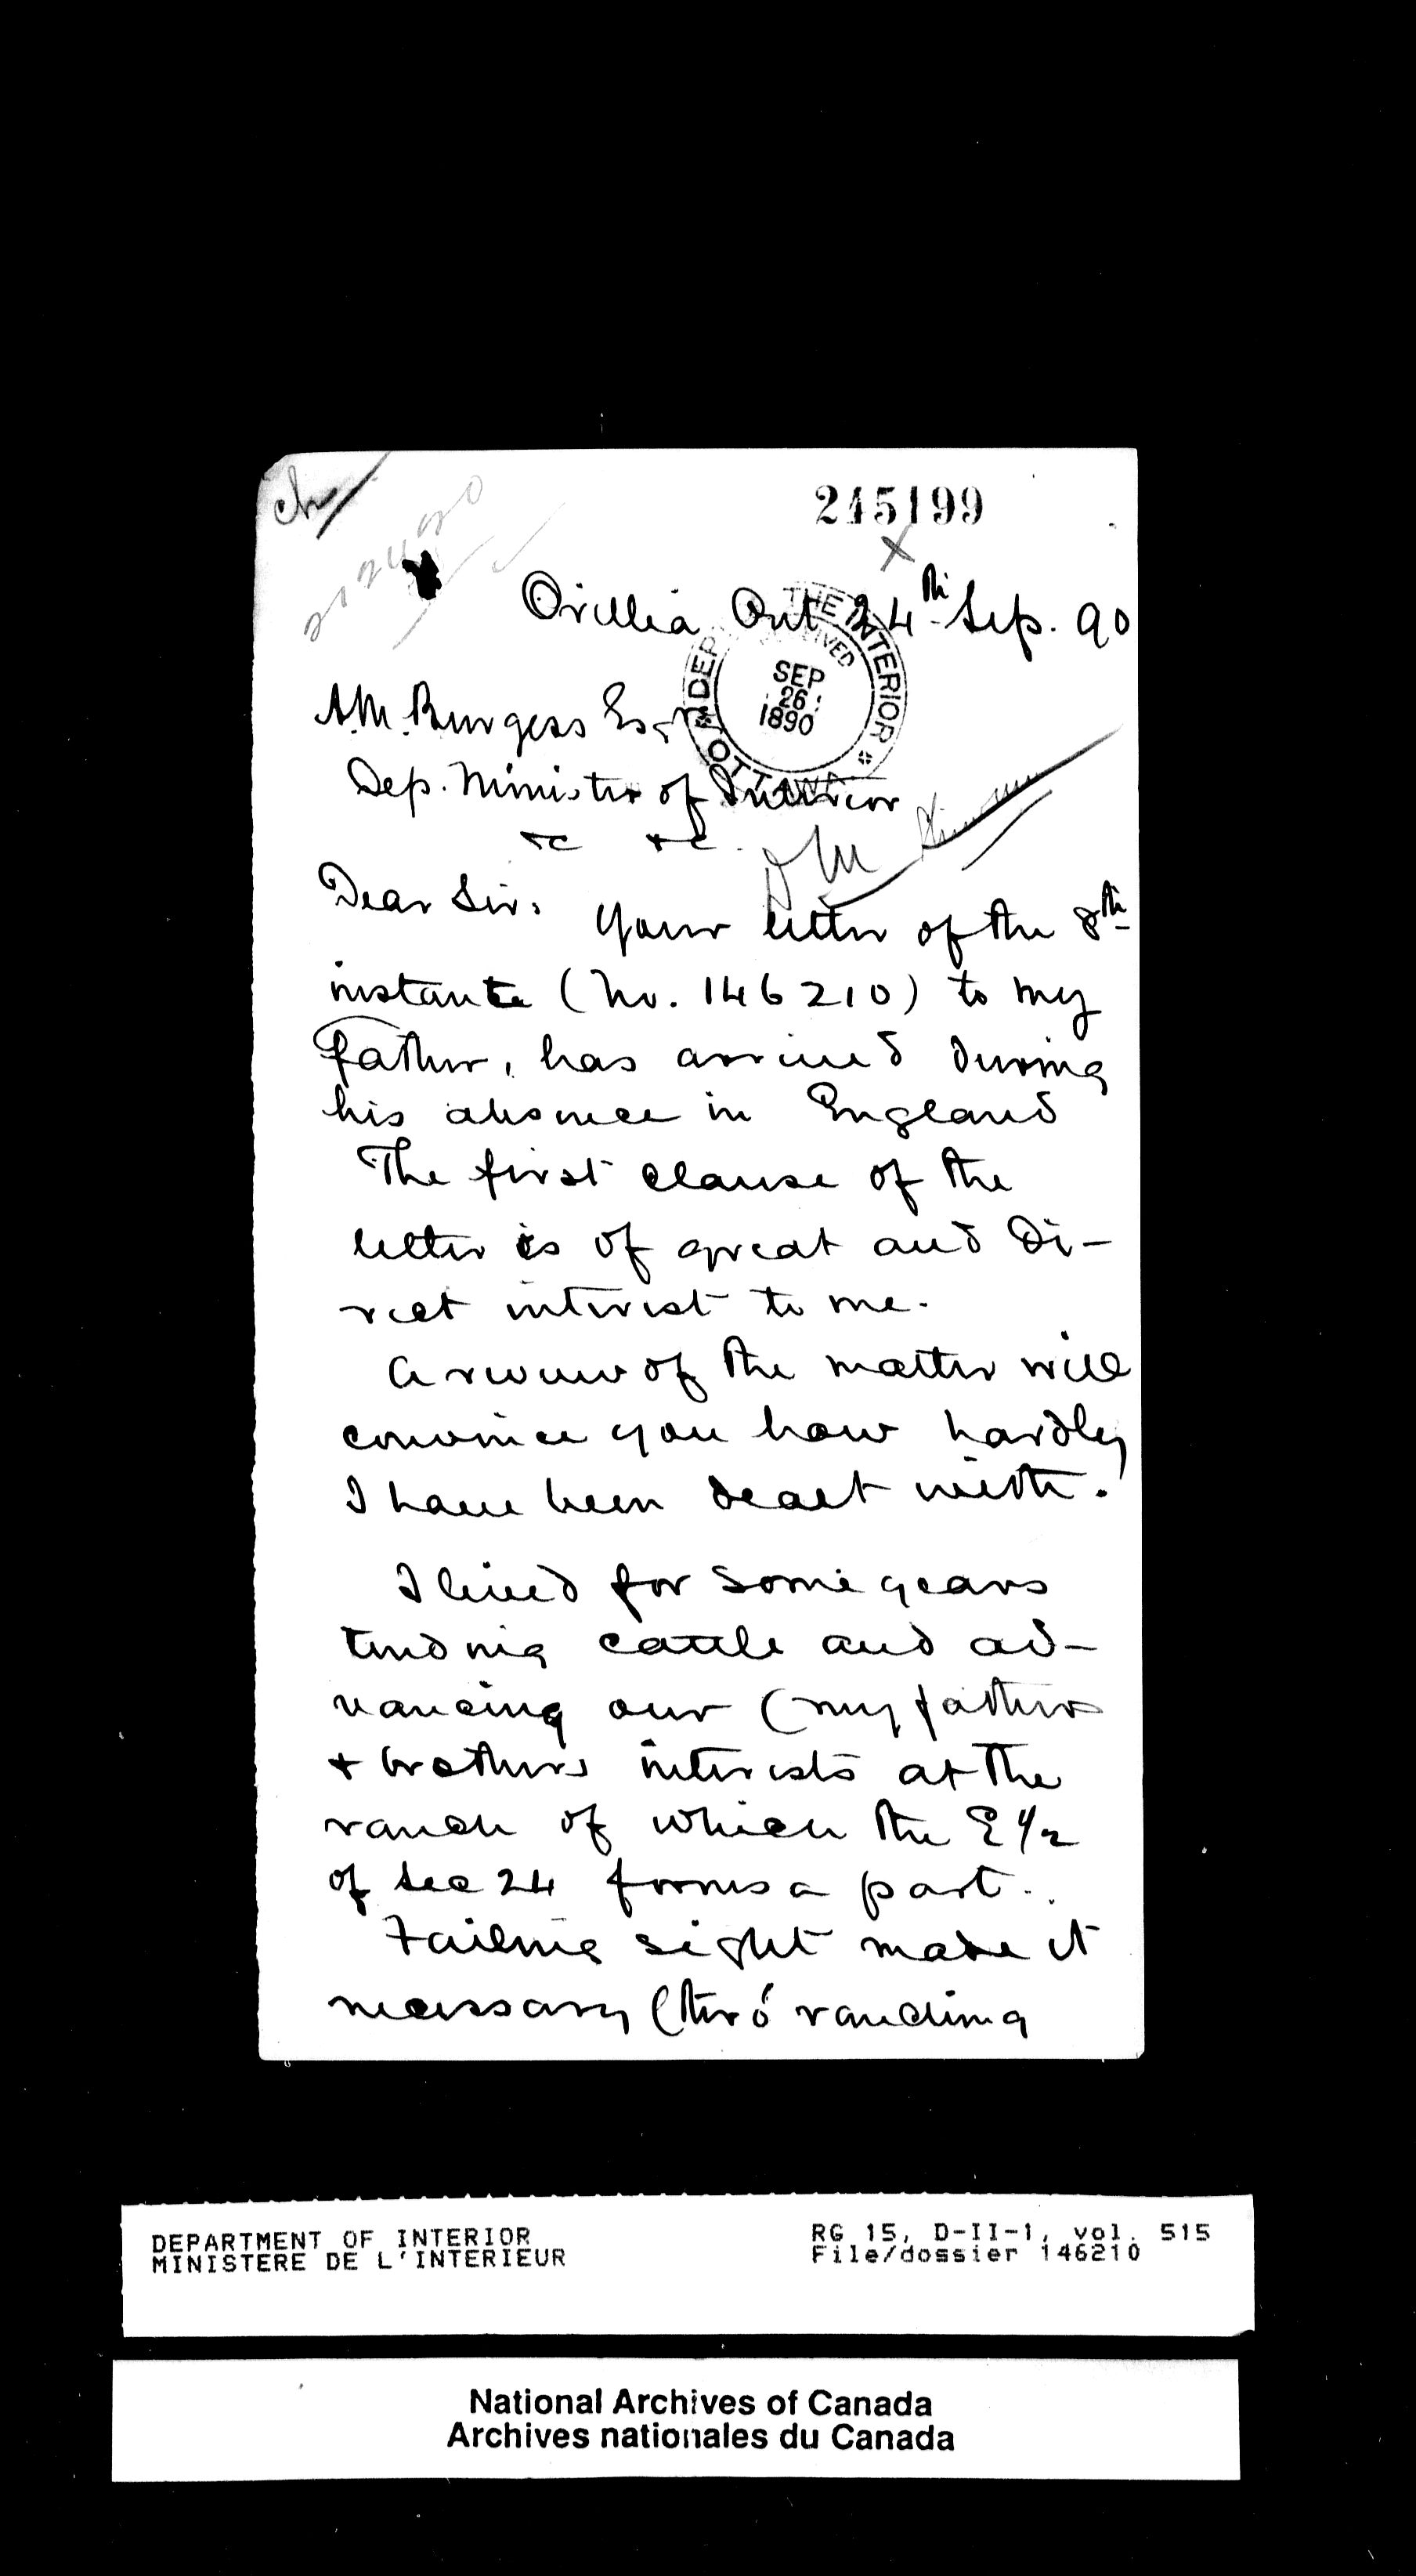 245199
Orillia Ont 24th Sep. 90
DEP THE INTERIOR
OTTAWA
SEP
26
1890
A.M. Burgess Esqr
Dep. Minister of Interior
&c &c.
Dear Sir, Your letter of the 8th
instante (No. 146210) to my
father, has arrived during
his absence in England
The first clause of the
letter is of great and di-
rect interest to me.
A review of the matter will
convince you how hardly
I have been dealt with.
I lived for some years
tending cattle and ad-
vancing our (my fathers
+ brothers interests at the
ranch of which the E 1/2
of sec 24 forms a part.
Failing sight made it
necessary (thro' ranching
DEPARTMENT OF INTERIOR
MINISTERE DE L'INTERIEUR
RG 15, D-II-1, vol. 515
File/dossier 146210
National Archives of Canada
Archives nationales du Canada